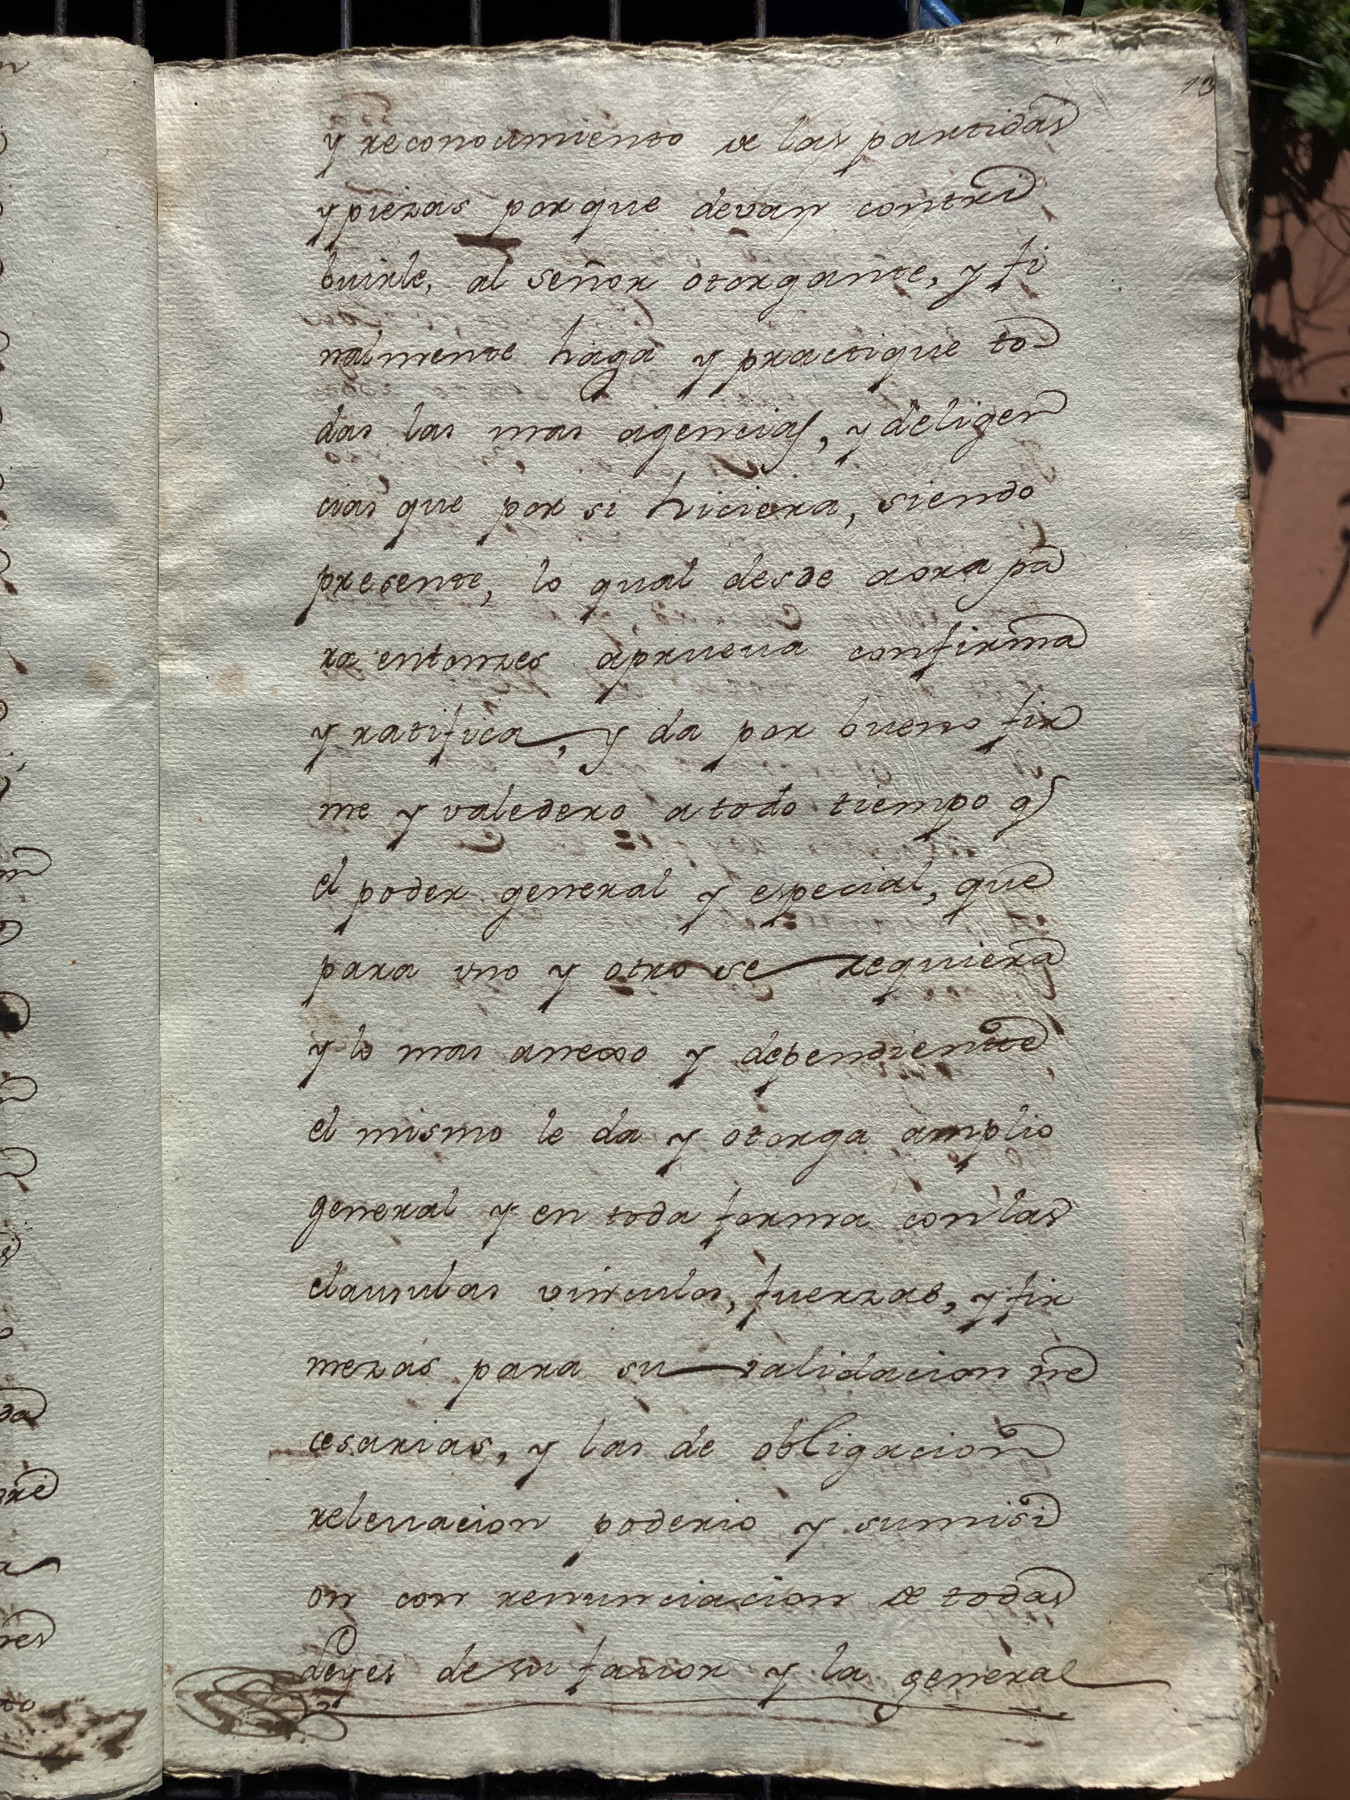 13
y reconocimiento de las partidas
y piezas porque devan contri
buirle, al señor otorgante, y fi
nalmente haga y practique to
das las mas agencias, y deligen
cias que por si hiciera, siendo
presente, lo qual desde aora pa
ra entonzes aprueva confirma
y ratifica, y da por bueno fir
me y valedero a todo tiempo qe
el poder general y especial, que
para uno y otro se requiera
y lo mas anexo y dependiente
el mismo le da y otorga amplio
general y en toda forma con las
clausulas vinculos, fuerzas, y fir
mezas para su validacion ne
cesarias, y las de obligacion
relevacion poderio y sumisi
on con renunciacion de todas
Leyes de su favor y la general